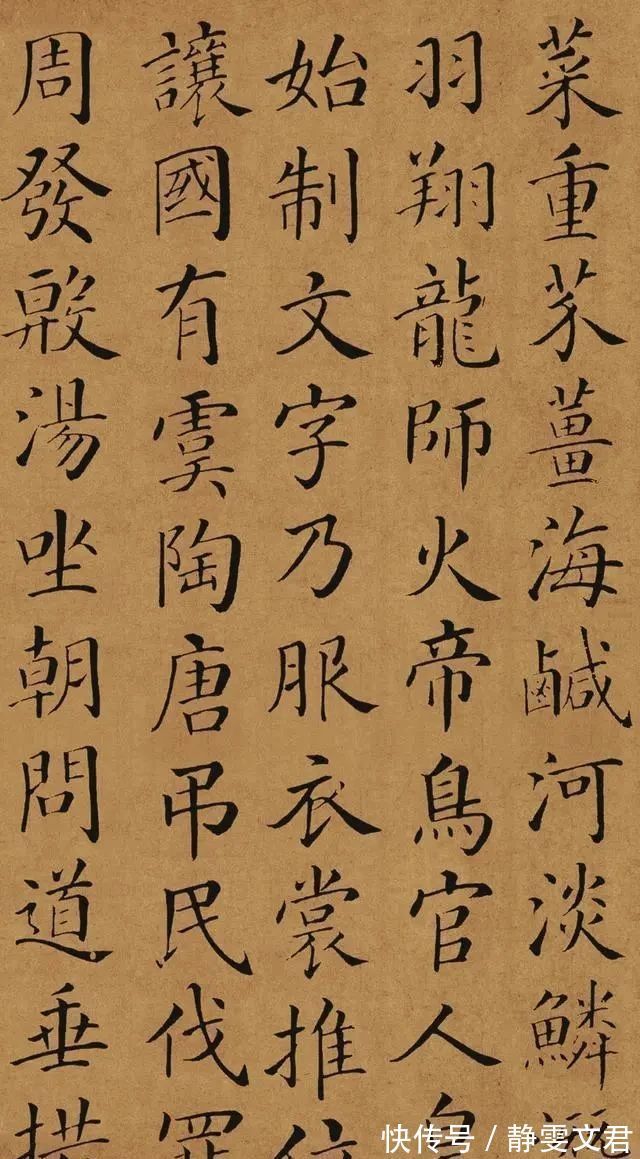 菜重芥薑海鹹河淡鱗
羽翔龍師火帝鳥官人皇
始制文字乃服衣裳推位
讓國有虞陶唐弔民伐罪
周發殷湯坐朝問道垂拱
快传号／静雯文君